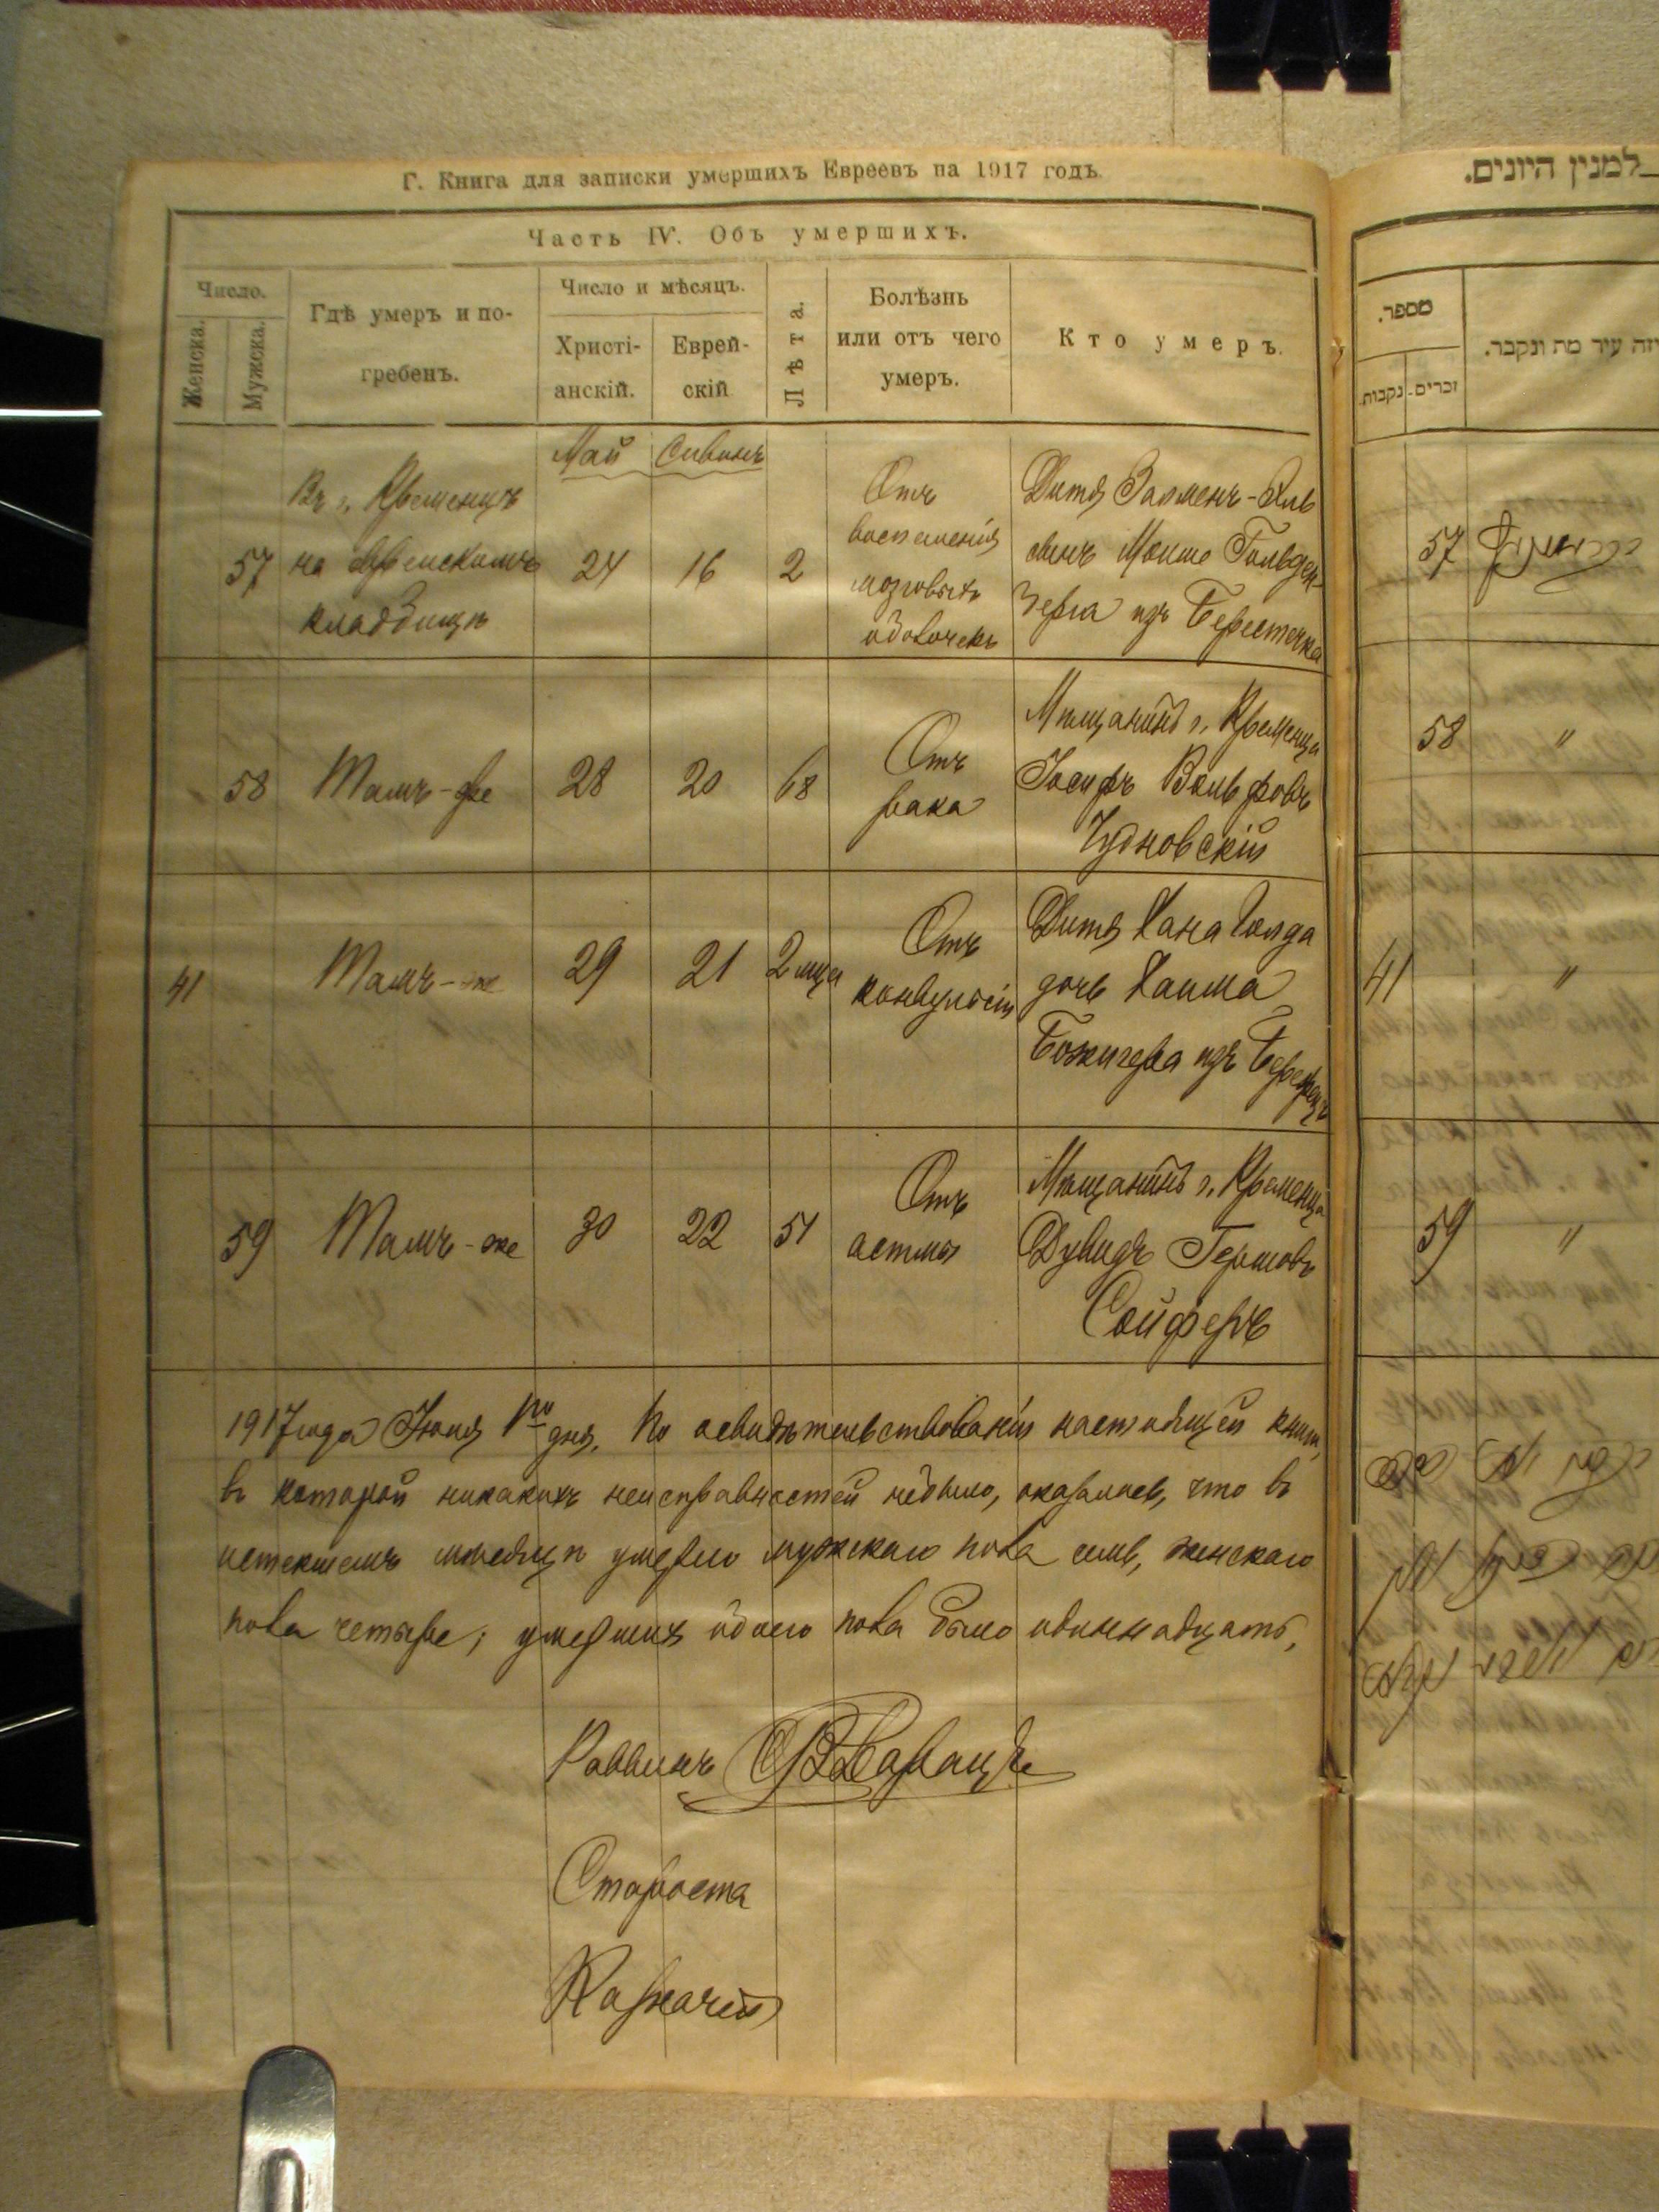 Г. Книга для записки умершихъ Евреевъ на 1917 годъ.
Часть IV. Объ умершихъ.
Число.
Женска.
Мужска.
Гдѣ умеръ и по-
гребенъ.
Число и мѣсяцъ.
Христі-
анскій.
Еврей-
скій
Лѣта.
Болѣзнь
или отъ чего
умеръ.
Кто умеръ.
Май Сивонъ
57
Въ г. Кременцѣ
на Еврейскомъ
кладбищѣ
24 16 2
Отъ
воспаленія
мозговыхъ
оболочекъ
Дитя Залменъ-
сынъ Мошко Гольден-
берга изъ Берестечка
58 Тамъ-же 28 20 68
Отъ
рака
Мѣщанинъ г. Кременца
Іосифъ Вольфовъ
Чудновскій
41 Тамъ-же 29 21 2 мца
Отъ
конвульсій
Дитя Хана Голда
дочь Хаима
изъ
59 Тамъ-же 30 22 51
Отъ
астмы
Мѣщанинъ г. Кременца
Дувидъ Гершовъ
Сойферъ
1917 года Іюня 1го дня. По освидѣтельствованіи настоящей книги,
въ которой никакихъ неисправностей не было, оказалось, что въ
истекшемъ мѣсяцѣ умерло мужскаго пола семь, женскаго
пола четыре; умершихъ обоего пола было одиннадцать,
Раввинъ
Староста
Казначей
למנין היונים.
מספר.
נקבות.
זכרים.
יזה עיר מת ונקבר.
57
58 "
41 "
59 "